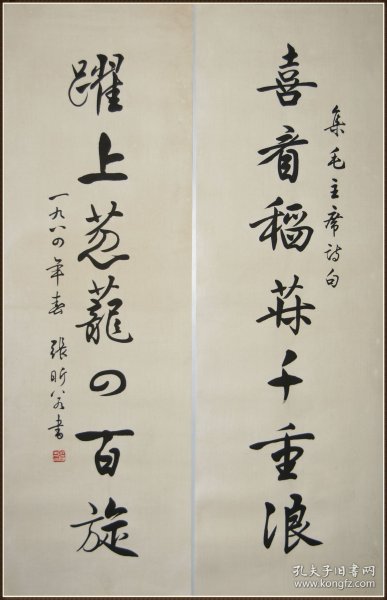 集毛主席诗句
喜看稻菽千重浪
躍上葱蘢四百旋
一九八四年春 張昕若書
孔夫子旧书网
www.kongfz.com